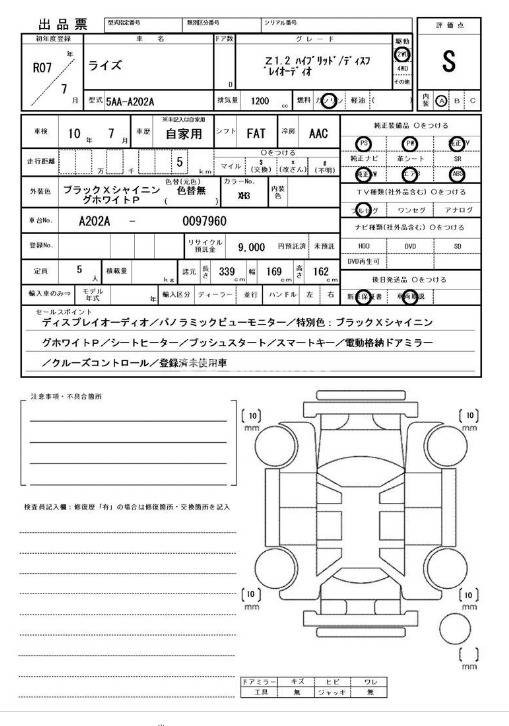 出品票 型式指定番号 類別区分番号 シリアル番号 評価点
初年度登録 車名 ドア数 グレード 駆動
R07 年 7 月 ライズ D Z1.2 ハイブリッド/ディスプ 2WD S
レイオーディオ 4WD
その他
型式 5AA-A202A 排気量 1200 cc 燃料 ガソリン 軽油 ( ) 内装 A B C
車検 10 年 7 月 車歴 ※未記入は自家用 自家用 シフト FAT 冷房 AAC 純正装備品 ○をつける
PS PW 純正TV
走行距離 万 千 5 km ○をつける
マイル $(交換) *(改ざん) #(不明) 純正ナビ 革シート SR
純正AW エアB ABS
外装色 ブラックXシャイニン
グホワイトP 色替(元色) 色替無 ( ) カラーNo. XH3 内装色 TV種類(社外品含む) ○をつける
フルセグ ワンセグ アナログ
車台No. A202A - 0097960 ナビ種類(社外品含む) ○をつける
登録No. リサイクル預託金 9,000 円預託済 未預託 HDD DVD SD
DVD再生可
定員 5 人 積載量 kg 諸元 長さ 339 cm 幅 169 cm 高さ 162 cm 後日発送品 ○をつける
輸入車のみ⇒ モデル年式 年 輸入区分 ディーラー 並行 ハンドル 左 右 新車保証書 車両取説
セールスポイント
ディスプレイオーディオ/パノラミックビューモニター/特別色:ブラックXシャイニン
グホワイトP/シートヒーター/プッシュスタート/スマートキー/電動格納ドアミラー
/クルーズコントロール/登録済未使用車
注意事項・不具合箇所
検査員記入欄:修復歴「有」の場合は修復箇所・交換箇所を記入
[10] mm [10] mm
[10] mm [10] mm
[ ] mm
ドアミラー キズ ヒビ ワレ
工具 無 ジャッキ 無